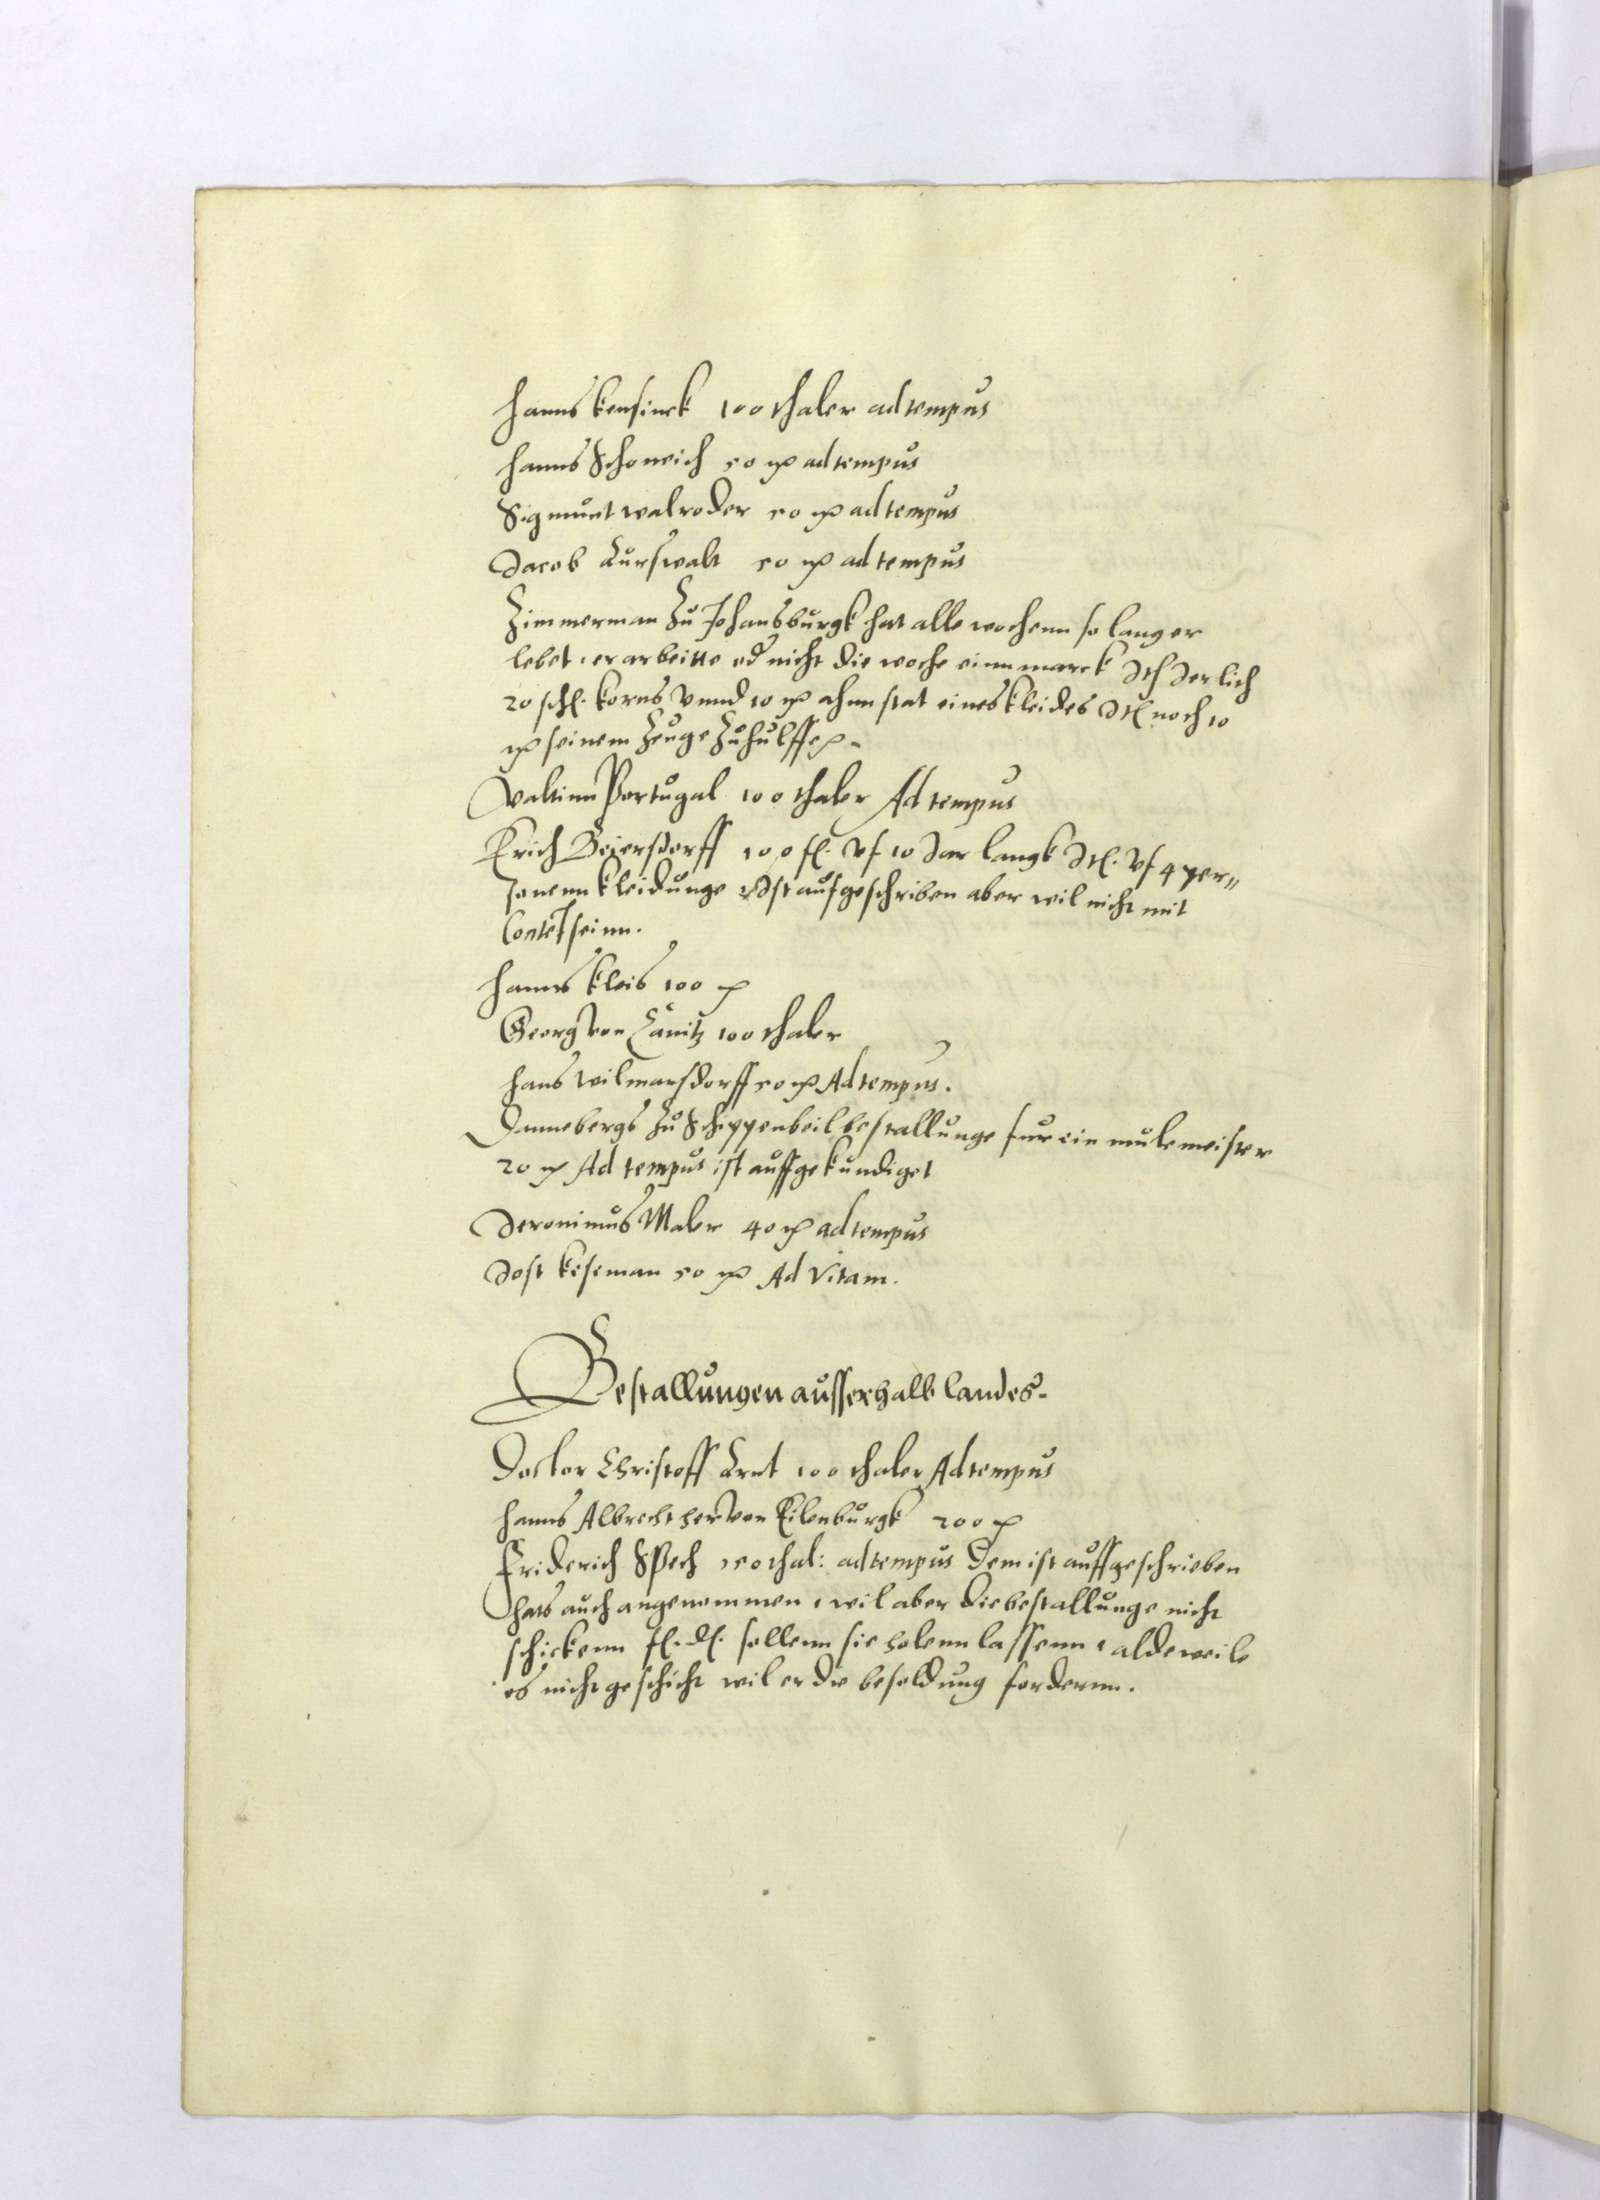 Hanns Kensinck 100 thaler ad tempus
Hanns Schoneich 50 mr ad tempus
Sigmunt walroder 50 mr ad tempus
Jacob Kurswalt 50 mr ad tempus
Zimmerman Zu Johansburgk hat alle wochenn so lang er
lebet, er arbeitte od nicht die woche einn marck Jerlich
20 schl. korns Vnnd 10 mr ahnn stat eines kleides noch 10
mr seinem Zeuge Zuhulffe
Valtinn Portugal 100 thaler Ad tempus
Erich Beiersdorff 100 fl. Vf 10 Jar langk Vf 4 per„
sonenn kleidunge Ist aufgeschriben aber wil nicht mit
Content seinn.
Hanns Kleis 100 mr
Georg von Canitz 100 thaler
Hans Wilmarsdorff 50 mr Ad tempus.
Dannebergs Zu Schippenbeil bestallunge fur ein mulemeister
20 mr Ad tempus ist auffgekundiget
Jeronimus Maler 40 mr ad tempus
Jost Keseman 50 mr Ad Vitam.
Bestallungen ausserhalb landes.
Doctor Christoff 100 thaler Ad tempus
Hanns Albrecht her von Eilenburgk 200 mr
Friderich Spech 150 thal: ad tempus Dem ist auffgeschrieben
hats auch angenommen, wil aber die bestallunge nicht
schickenn f. d. sollenn sie holenn lassenn, aldeweile
es nicht geschicht wil er die besoldung fordernn.